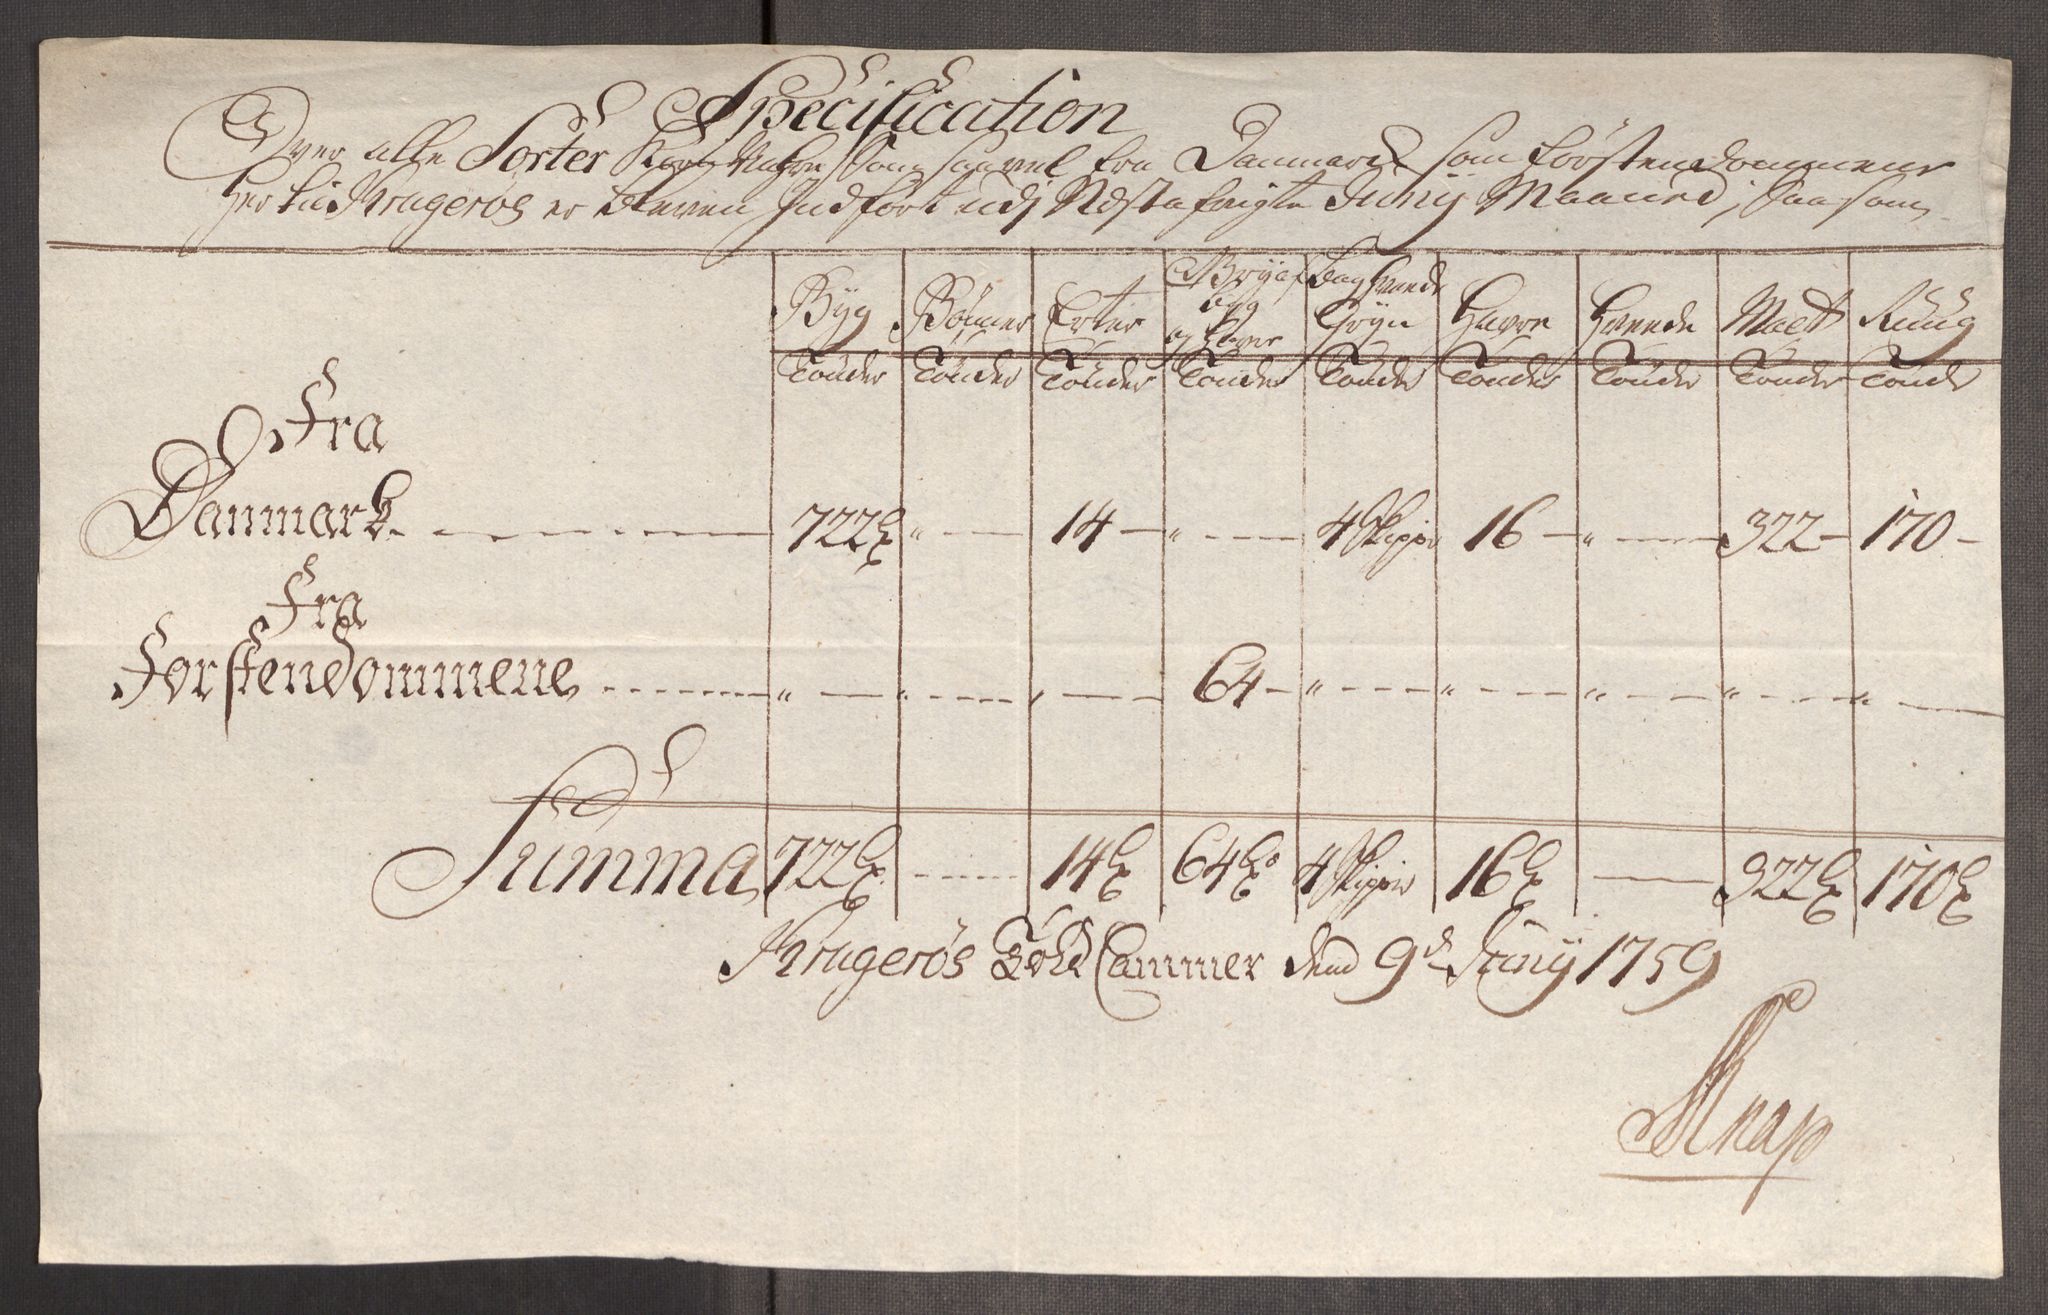 Specification
Over alle Sorter Korn Vahre Som saavel fra Danmarck som förstendommene
her til Kragerøs er bleven Indført udj Næst afvigte Junij Maaned, saasom
Byg Bönner Erter Gryn af Byg og Hafre Hvede Gryn Havre Hvede Malt Ruug
Tönder Tönder Tönder Tönder Tönder Tönder Tönder Tönder Tönder
Fra
Danmark 722 " 14 " 4 Skipper 16 " 322 170
Fra
Forstendommene " " " 64 " " " " "
Summa 722 14 64 4 Skipper 16 322 170
Kragerøs Told Cammer dend 9d Junij 1759
Knap